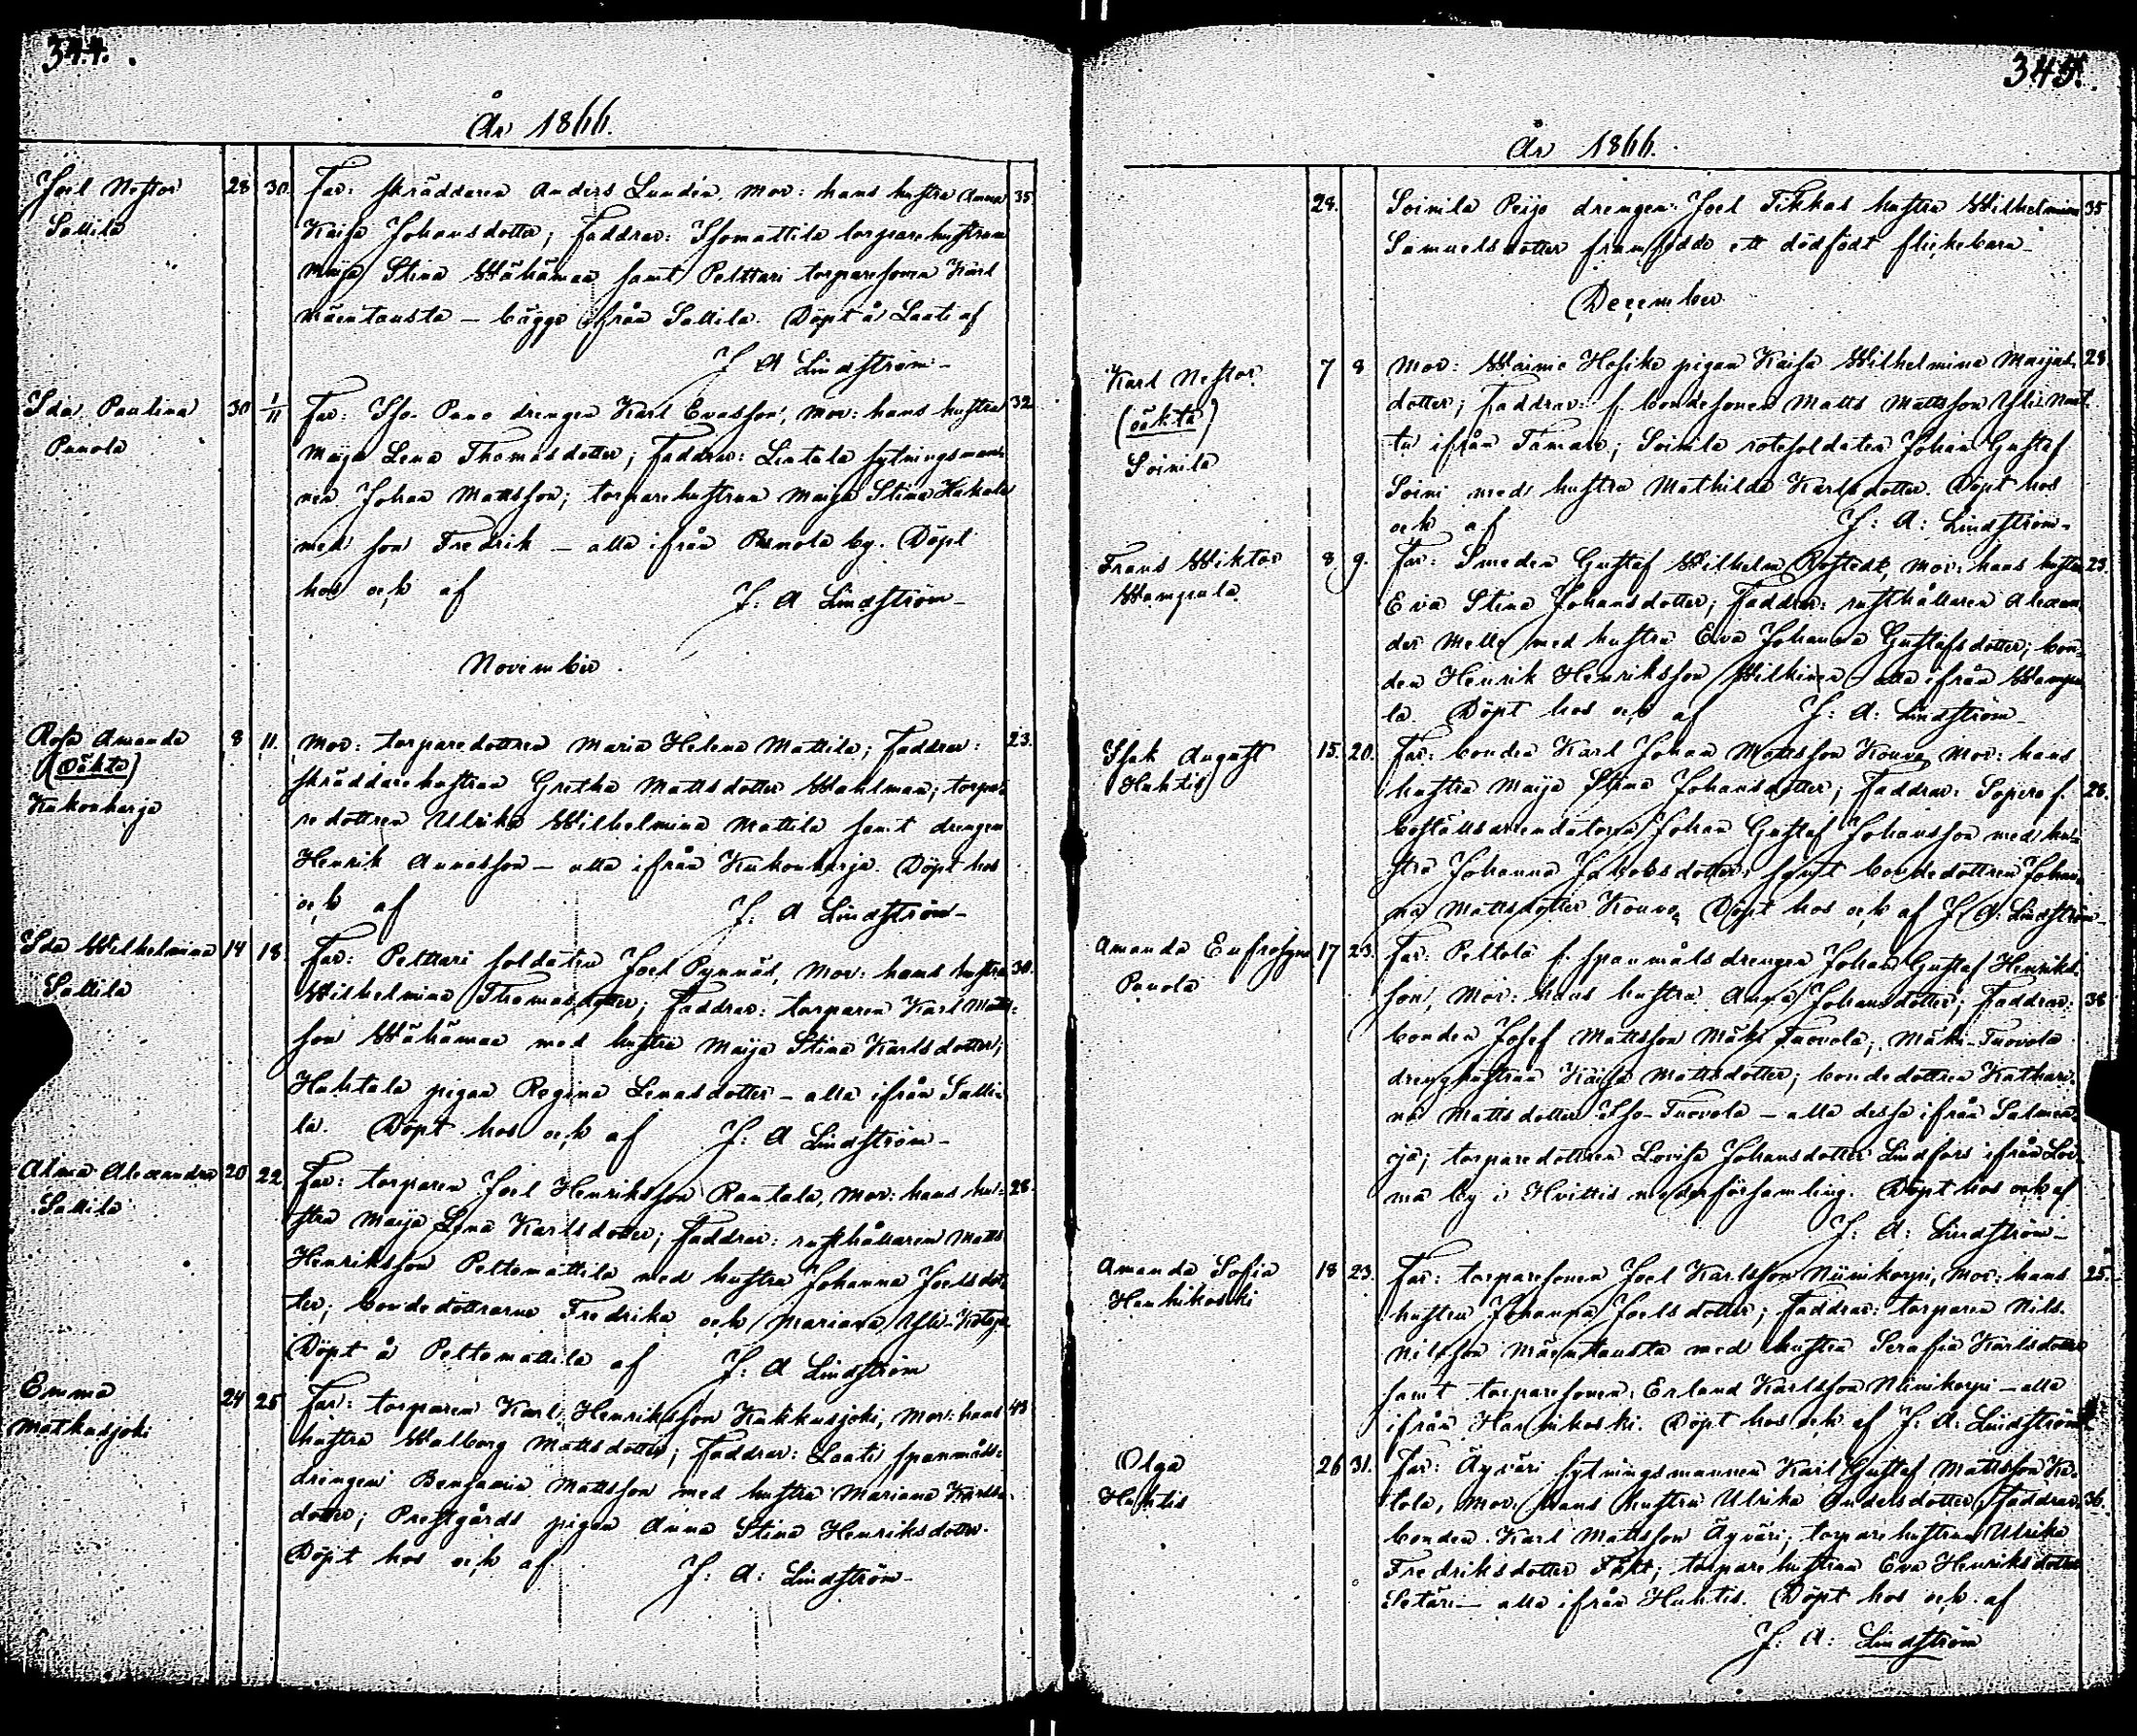 344.
År 1866.
Joel Nestor 28 30. Far: skräddaren Anders Lundén, Mor: hans hustru Anna 35
Sallila Kaisa Johansdotter; Faddrar: Isomattila torparehustrun
Maija Stina Wähämaa samt Pelttari torparesonen Karl
Mäentausta – bägge ifrån Sallila. Döpt å Laati af
J A Lindström –
Ida Paulina 30 1/11 Far: Iso-Pano drengen Karl Evasson, Mor: hans hustru 32
Punola Maija Lena Thomasdotter; Faddrar: Lintala sytningsman-
nen Johan Mattsson; torparehustrun Maija Stina Hakala
med son Fredrik – alla ifrån Punola by. Döpt
hos och af J: A Lindström –
November.
Rosa Amanda 8 11. Mor: torparedottren Maria Helena Mattila; Faddrar: 23.
(oäkta) skräddarehustrun Gretha Mattsdotter Wahlman; torpa-
Kukonharja redottren Ulrika Wilhelmina Mattila samt drengen
Henrik Annasson – alla ifrån Kukonharja. Döpt hos
och af J: A Lindström –
Ida Wilhelmina 14 18. Far: Pelttari soldaten Joel Pynnäs, Mor: hans hustru 30.
Sallila Wilhelmina Thomasdotter; Faddrar: torparen Karl Matts-
son Wähämaa med hustru Maija Stina Karlsdotter;
Huhtala pigan Regina Lenasdotter – alla ifrån Salli-
la. Döpt hos och af J: A Lindström –
Alma Alexandra 20 22. Far: torparen Joel Henriksson Rantala, Mor: hans hu- 28.
Sallila stru Maija Lena Karlsdotter; Faddrar: rusthållaren Matts
Henriksson Peltomattila med hustru Johanna Joelsdot-
ter; bondedöttrarne Fredrika och Mariana Yli-
Döpt å Peltomattila af J: A Lindström
Emma 24 25 Far: torparen Karl Henriksson Kukkusjoki, Mor: hans 43
Matkusjoki hustru Walborg Mattsdotter; Faddrar: Laati spanmåls-
drengen Benjamin Mattsson med hustru Mariana Karls-
dotter; Prestgårds pigan Anna Stina Henriksdotter.
Döpt hos och af J: A: Lindström –
345.
År 1866.
28. Soinila Peijo drengen Joel Tikkas hustru Wilhelmina 35
Samuelsdotter framfödde ett dödfödt flickebarn –
December
Karl Nestor 7 8 Mor: Wainio Hosike pigan Kaisa Wilhelmina Maijas- 28.
(oäkta) dotter; Faddrar: f. bondesonen Matts Mattsson Yli-
Soinila ifrån Tamare; Soinila rotesoldaten Johan Gustaf
Soini med hustru Mathilda Karlsdotter. Döpt hos
och af J: A: Lindström –
Frans Wiktor 8 9. Far: Smeden Gustaf Wilhelm Rostedt, Mor: hans hustru 23.
Wampula Eva Stina Johansdotter; Faddrar: rusthållaren Alexan-
der Melle med hustru Eva Johanna Gustafsdotter; bon-
den Henrik Henriksson Wilkinen – alla ifrån Wampu-
la. Döpt hos och af J: A: Lindström –
Isak August 15. 20. Far: bonden Karl Johan Mattsson Kouvo, Mor: hans
Huhtis hustru Maija Stina Johansdotter; Faddrar: Sopero f. 28.
boställsarrendatorn Johan Gustaf Johansson med hu-
stru Johanna Jakobsdotter, samt bondedottren Johan-
na Mattsdotter Kouvo. Döpt hos och af J: A: Lindström –
Amanda Eufrosyne 17 23. Far: Peltola f. spanmålsdrengen Johan Gustaf Henriks-
Punola son, Mor: hans hustru Anna Johansdotter; Faddrar: 38
bonden Josef Mattsson Mäki-Tuovola; Mäki-Tuovola
drenghustrun Kaisa Mattsdotter; bondedottren Kathari-
na Mattsdotter Iso-Tuovola – alla dessa ifrån Salmen-
oja; torparedottren Lovisa Johansdotter Lindfors ifrån Loi-
ma by i Hvittis moderförsamling. Döpt hos och af
J: A: Lindström –
Amanda Sofia 18 23. Far: torparesonen Joel Karlsson Niinikorpi, Mor: hans 25.
Hanhikoski hustru Johanna Joelsdotter; Faddrar: torparen Nils
Nilsson Mäentausta med hustru Serafia Karlsdotter
samt torparesonen Erland Karlsson Niinikorpi – alla
ifrån Hanhikoski. Döpt hos och af J: A: Lindström
Olga 26 31. Far: Äyväri sytningsmannen Karl Gustaf Mattsson Ka-
Huhtis tola, Mor: hans hustru Ulrika Andersdotter; Faddrar: 36.
bonden Karl Mattsson Äyväri; torparehustrun Ulrika
Fredriksdotter; torparehustrun Eva Henriksdotter
Setäri – alla ifrån Huhtis. Döpt hos och af
J: A: Lindström